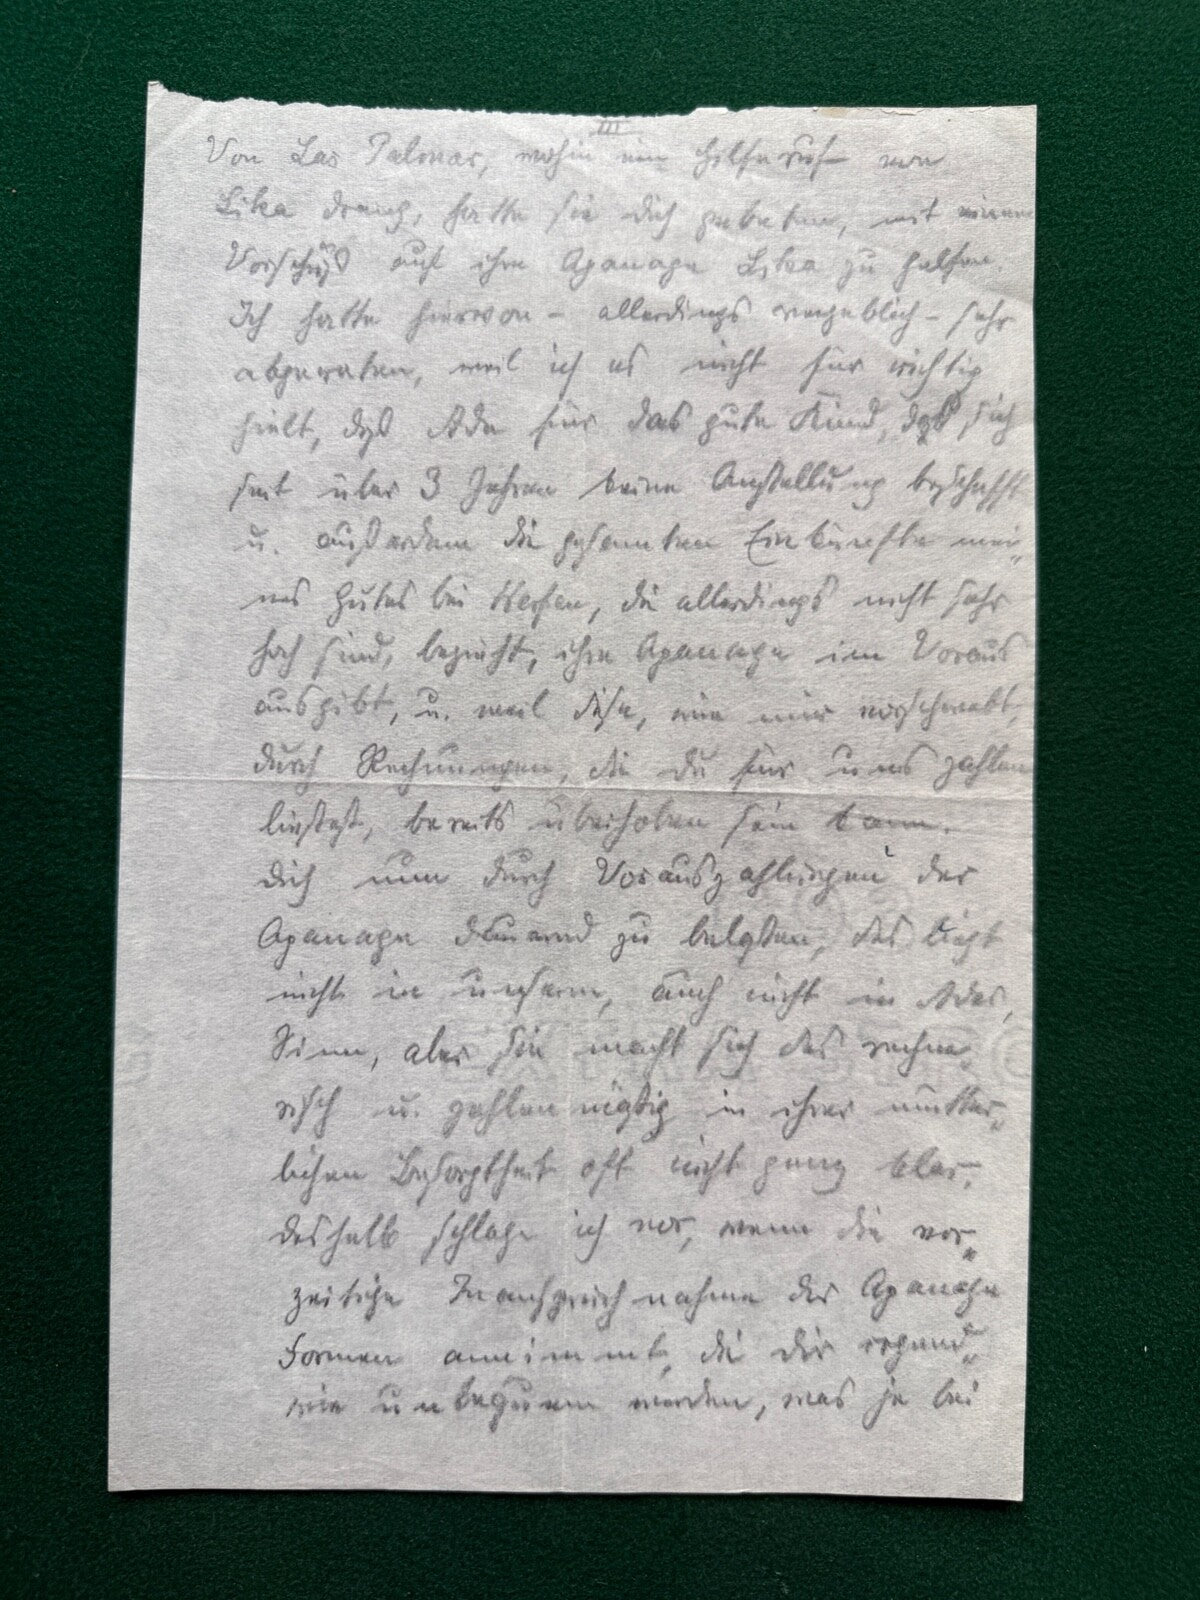 III
Von Las Palmas, wohin ein Hilferuf von
Lika drang, hatte sie dich gebeten, mit einem
Vorschuß auf ihre Apanage Lika zu helfen.
Ich hatte hiervon – allerdings vergeblich – sehr
abgeraten, weil ich es nicht für richtig
hielt, daß Ada für das gute Kind, das sich
seit über 3 Jahren keine Anstellung beschafft
u. außerdem die gesamten Einkünfte mei„
nes Gutes bei, die allerdings nicht sehr
hoch sind, bezieht, ihre Apanage im Voraus
ausgibt, u. weil diese, wie mir vorschwebt,
durch Rechnungen, die du für uns zahlen
ließest, bereits überhoben sein kann.
Dich nun durch Vorauszahlungen der
Apanage dauernd zu belasten, das liegt
nicht in unserm, auch nicht in Adas,
Sinn, aber sie macht sich das rechne„
risch u. zahlenmäßig in ihrer mütter„
lichen Besorgtheit oft nicht ganz klar.
Deshalb schlage ich vor, wenn die vor„
zeitige Inanspruchnahme der Apanage
Formen annimmt, die dir irgend„
wie unbequem werden, was ja bei